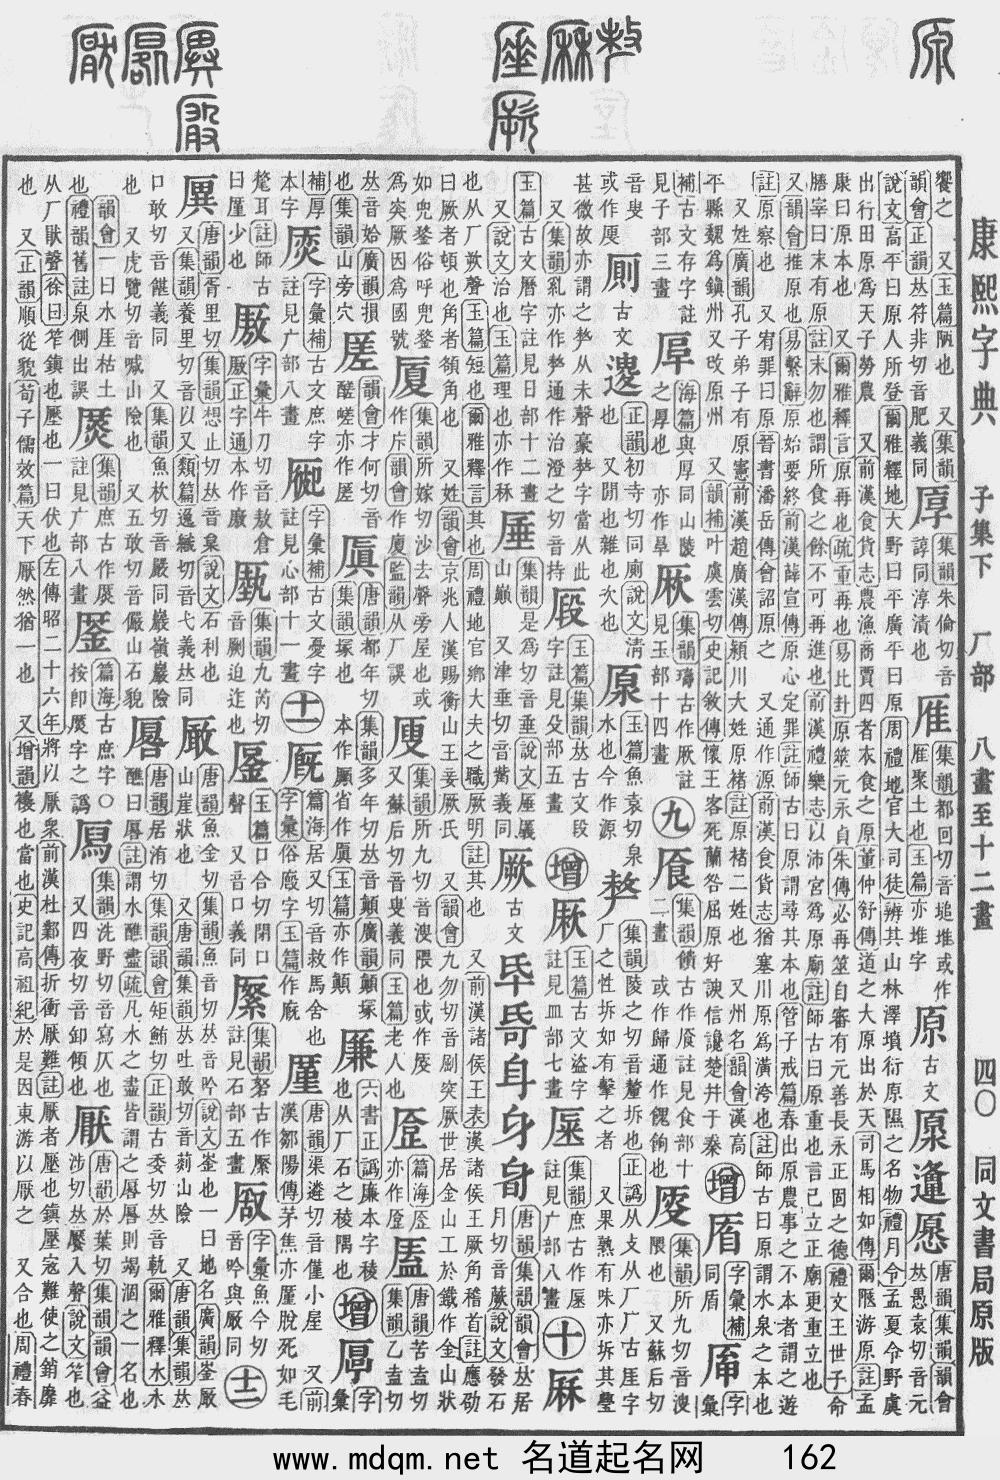 康熙字典 子集下 厂部 八畫至十二畫 四〇 同文書局原版
饗之 又玉篇陋也 又集韻
韻會正韻𠀤符非切音肥義同
集韻朱倫切音
諄同淳清也
集韻都回切音塠堆或作
雁聚土也玉篇亦堆字
原
古文
邍愿
唐韻集韻韻會
𠀤愚袁切音元
說文高平曰原人所登爾雅釋地大野曰平廣平曰原周禮地官大司徒辨其山林川澤墳衍原隰之名物禮月令孟夏令野虞
出行田原爲天子勞農 又前漢食貨志農漁商賈四者衣食之原董仲舒傳道之大原出於天司馬相如傳爾陿游原註孟
康曰原本也 又爾雅釋言原再也疏重再也易比卦原筮元永貞朱傳必再筮自審有元善長永正固之德禮文王世子命
膳宰曰末有原註末勿也謂所食之餘不可再進也前漢禮樂志以沛宮爲原廟註師古曰原重也言已立正廟更重立也
又韻會推原也易繫辭原始要終前漢薛宣傳原心定罪註師古曰原謂尋其本也管子戒篇春出原農事之不本者謂之遊
註原察也 又宥罪曰原晉書潘岳傳會詔原之 又通作源前漢食貨志猶塞川原爲潢洿也註師古曰原謂水泉之本也
又姓廣韻孔子弟子有原憲前漢趙廣漢傳潁川大姓原褚註原褚二姓也 又州名韻會漢高
平縣魏爲鎮州又改原州 又韻補叶虞雲切史記敘傳懷王客死蘭咎屈原好諛信讒楚幷于秦
增
字彙補
同盾
字
彙
補古文存字註
見子部三畫
厚
海篇與厚同山陵
之厚也 亦作㫗
集韻璹古作厥註
見玉部十四畫
九
集韻饋古作𠩢註見食部十
二畫 或作歸通作餽餉也
集韻所九切音溲
隈也 又蘇后切
音叟
或作廋
厠
古文
正韻初寺切同廁說文清
也 又閒也雜也次也
玉篇魚袁切泉
水也今作源
集韻陵之切音釐坼也正譌从攴从厂厂古厓字
厂之性坼如有擊之者 又果熟有味亦坼其𣁋
甚微故亦謂之𠩺从未聲豪𠩺字當从此
又集韻亂亦作𠩺通作治澄之切音持
玉篇集韻𠀤古文段
字註見殳部五畫
增
玉篇古文盜字
註見皿部七畫
集韻庶古作𠩠
註見广部八畫
十
玉篇古文曆字註見日部十二畫
又說文治也玉篇理也亦作秝
厜
集韻是爲切音垂說文厜㕒
山巔 又津垂切音觜義同
厥
古文
唐韻集韻韻會𠀤居
月切音蕨說文發石
也从厂欮聲玉篇短也爾雅釋言其也周禮地官鄉大夫之職厥明註其也 又前漢諸侯王表漢諸侯王厥角稽首註應劭
曰厥者頓也角者頟角也 又姓韻會京兆人漢賜衡山王妾厥氏 又韻會九勿切音𠜾突厥世居金山工於鐵作金山狀
如兜鍪俗呼兜鍪
爲突厥因爲國號
厦
集韻所嫁切沙去聲旁屋也或
作庌韻會作廈監韻从厂誤
集韻所九切音溲隈也或作庱
又蘇后切音叟義同玉篇老人也
篇海厔也
亦作厔
唐韻苦盍切
集韻乙盍切
𠀤音姶廣韻損
也集韻山旁穴
韻會才何切音
醝嵯亦作厜
唐韻都年切集韻多年切𠀤音顚廣韻顚冢
集韻冢也 本作𩕾省作厧玉篇亦作顛
厤
六書正譌廉本字稜
也从厂石之稜隅也
增
字
彙
補厚
本字
字彙補古文庶字
註見广部八畫
字彙補古文憂字
註見心部十一畫
十一
厩
篇海居又切音救馬舍也
字彙俗廏字玉篇作廐
厪
唐韻渠遴切音僅小屋 又前
漢鄒陽傳茅焦亦厪脫死如毛
氂耳註師古
曰厪少也
厫
字彙牛刀切音敖倉
廒正字通本作廒
集韻九芮切
音劌迫迮也
玉篇口合切閉口
聲 又音口義同
集韻砮古作厬
註見石部五畫
字彙魚今切
音吟與㕂同
十二
唐韻胥里切集韻想止切𠀤音枲說文石利也
又集韻養里切音以又類篇逸織切音弋義𠀤同
厰
唐韻魚金切集韻魚音切𠀤音吟說文崟也一曰地名廣韻崟厰
山崖狀也 又唐韻集韻𠀤吐敢切音菼山險 又唐韻集韻𠀤
口敢切音䶫義同 又集韻魚杴切音嚴同巖嶺巖險
也 又虎覽切音㺖山險也 又五敢切音儼山石貌
厬
唐韻居洧切集韻韻會矩鮪切正韻古委切𠀤音軌爾雅釋水水
醮曰厬註謂水醮盡疏凡水之盡皆謂之厬厬則竭涸之一名也
韻會一曰水厓枯土
也禮韻舊註泉側出誤
集韻庶古作㢋
註見广部八畫
篇海古庶字○
按卽㢋字之譌
厩
集韻洗野切音寫仄也
又四夜切音卸傾也
厭
唐韻於葉切集韻韻會益
涉切𠀤魘入聲說文笮也
从厂猒聲徐曰笮鎮也壓也一曰伏也左傳昭二十六年將以厭衆前漢杜鄴傳折衝厭難註厭者壓也鎮壓寇難使之銷靡
也 又正韻順從貌荀子儒效篇天下厭然猶一也 又增韻禳也當也史記高祖紀於是因東游以厭之 又合也周禮春
www.mdqm.net 名道起名网 162